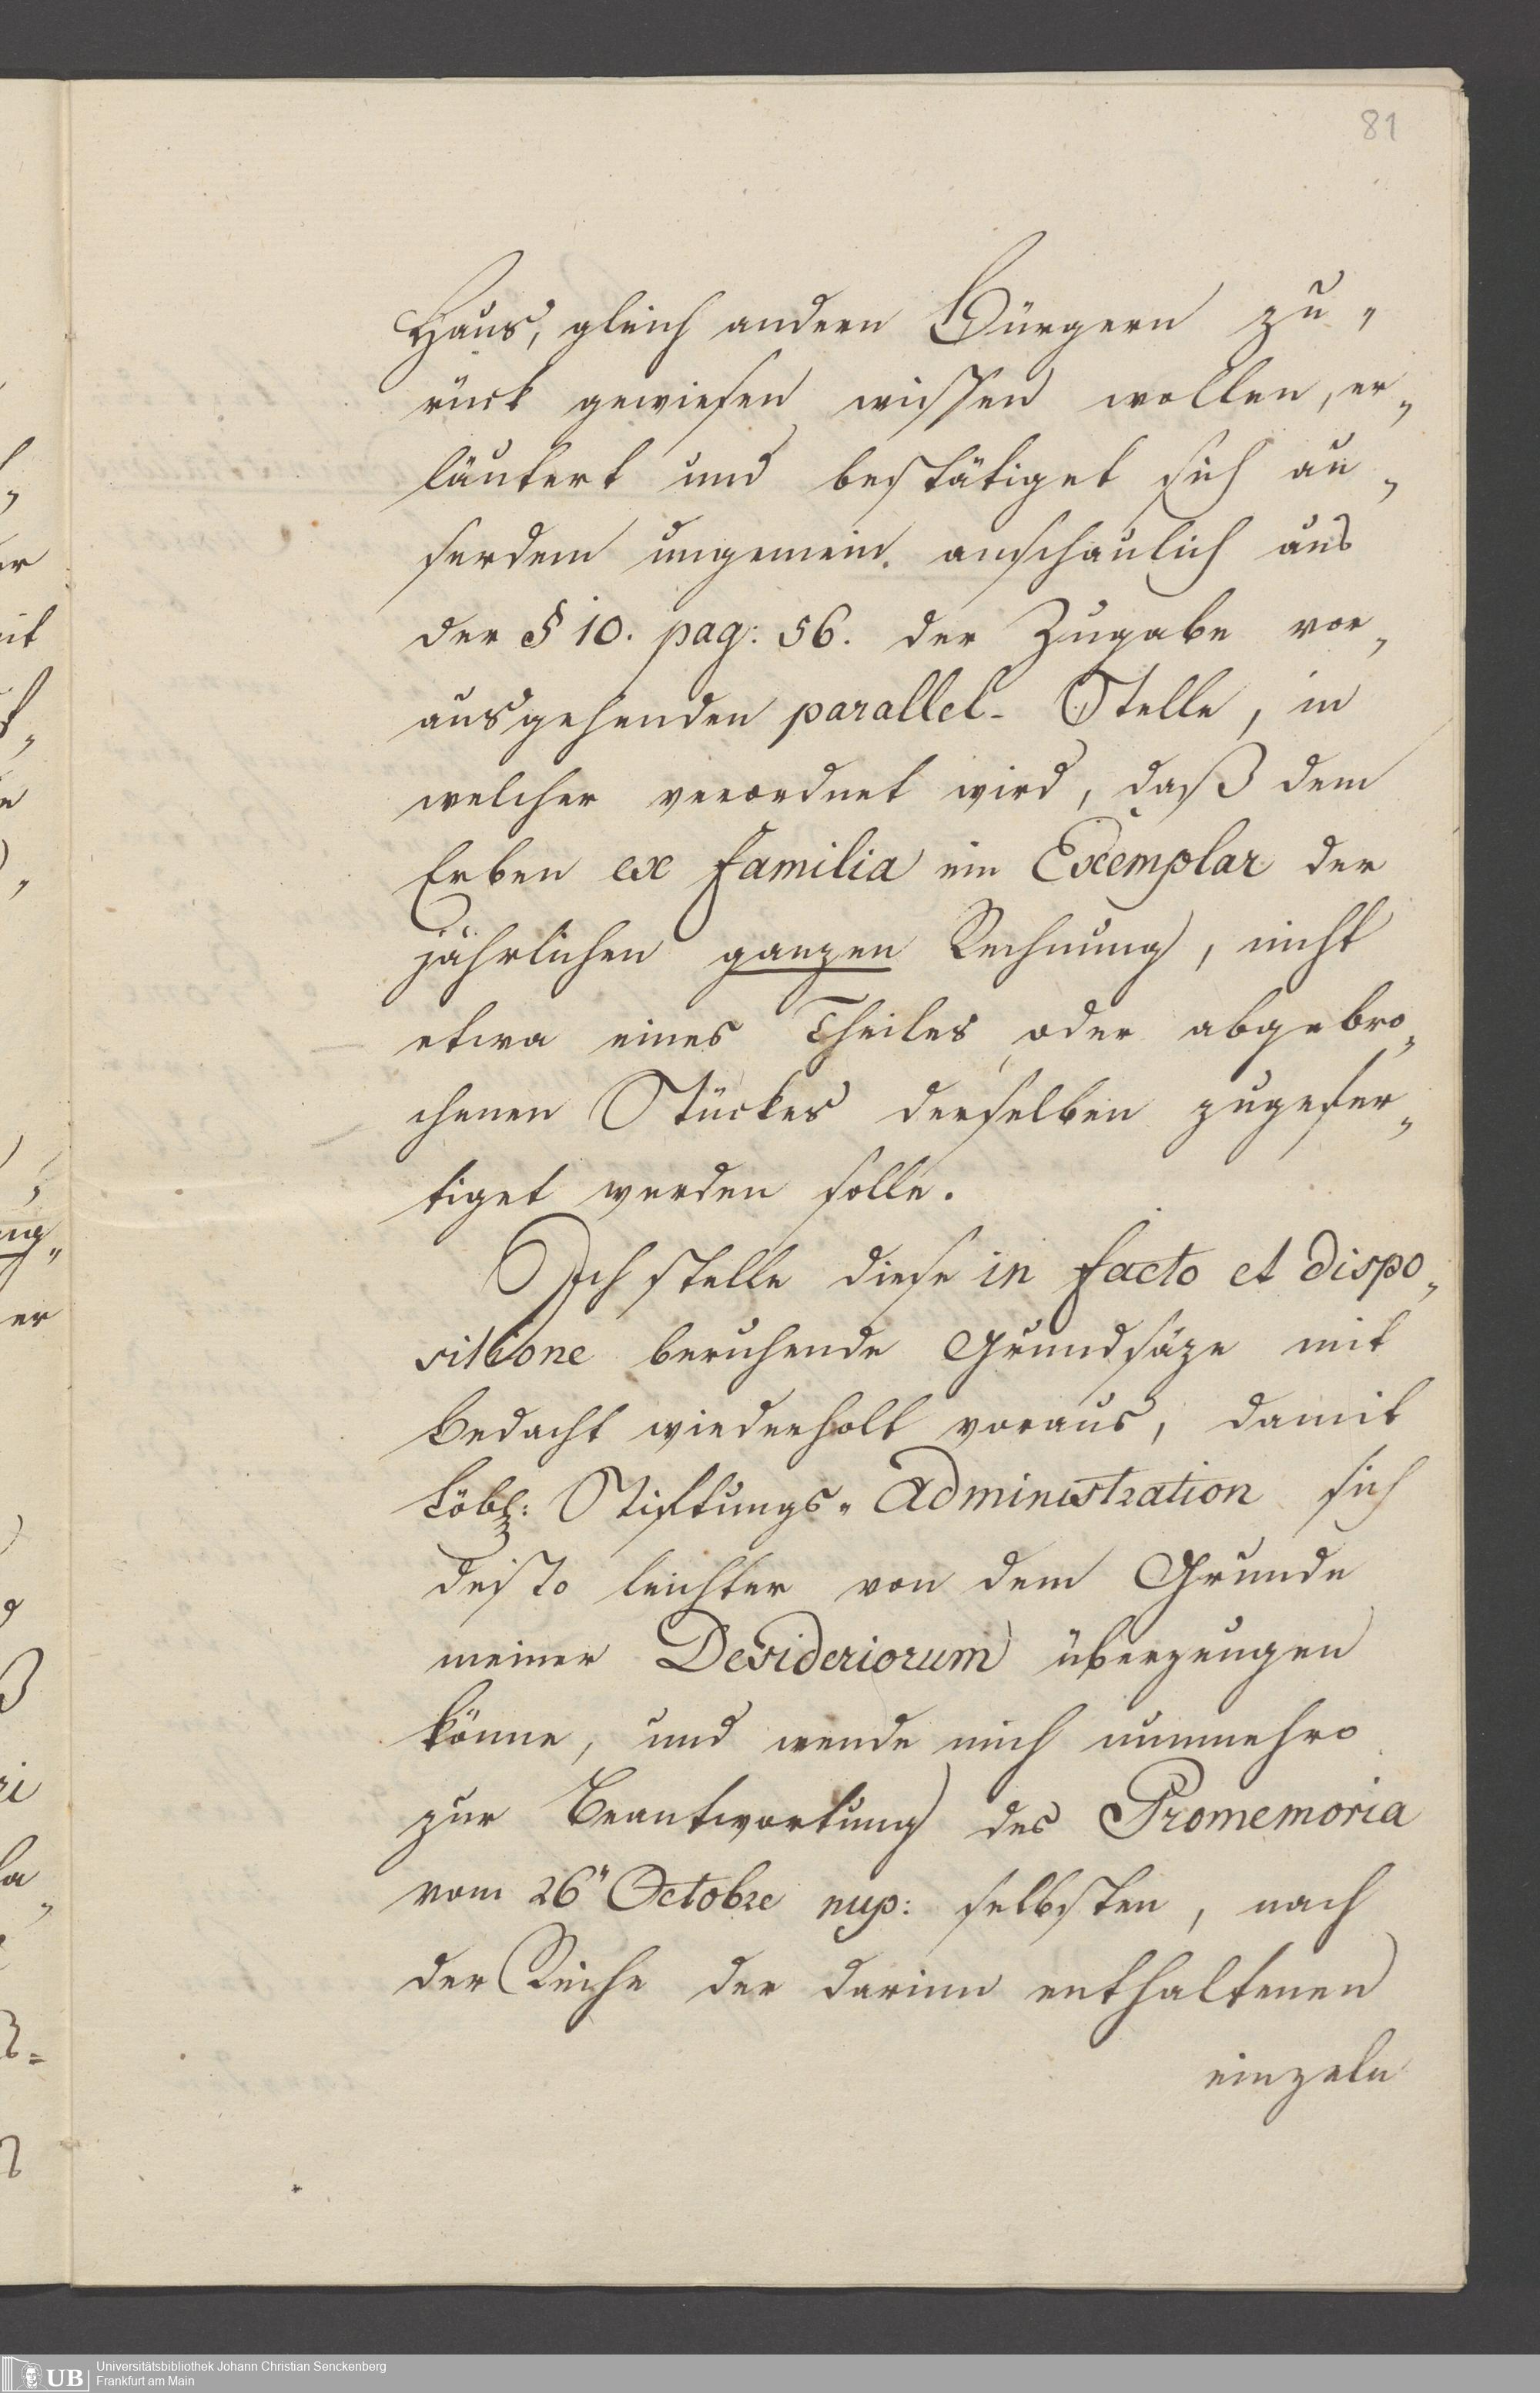 81
Haus, gleich andern Bürgern zu„
rück gewiesen wissen wollen, er„
läutert und bestätiget sich au„
serdem ungemein anschaulich aus
der § 10. pag: 56. der Zugabe vor„
ausgehenden parallel- Stelle, in
welcher verordnet wird, daß dem
Erben ex familia ein Exemplar der
jährlichen ganzen Rechnung, nicht
etwa eines Theiles oder abgebro„
chenen Stückes derselben zugefer„
tiget werden solle.
Ich stelle diese in facto et dispo„
sitione beruhende Grundsäze mit
Bedacht wiederholt voraus, damit
Löbl: Stiftungs„ Administration sich
desto leichter von dem Grunde
meiner Desideriorum überzeugen
könne, und wende mich nunmehro
zur Beantwortung des Promemoria
vom 26" Octobre nup: selbsten, nach
der Reihe der darinn enthaltenen
einzeln
UB
Universitätsbibliothek Johann Christian Senckenberg
Frankfurt am Main